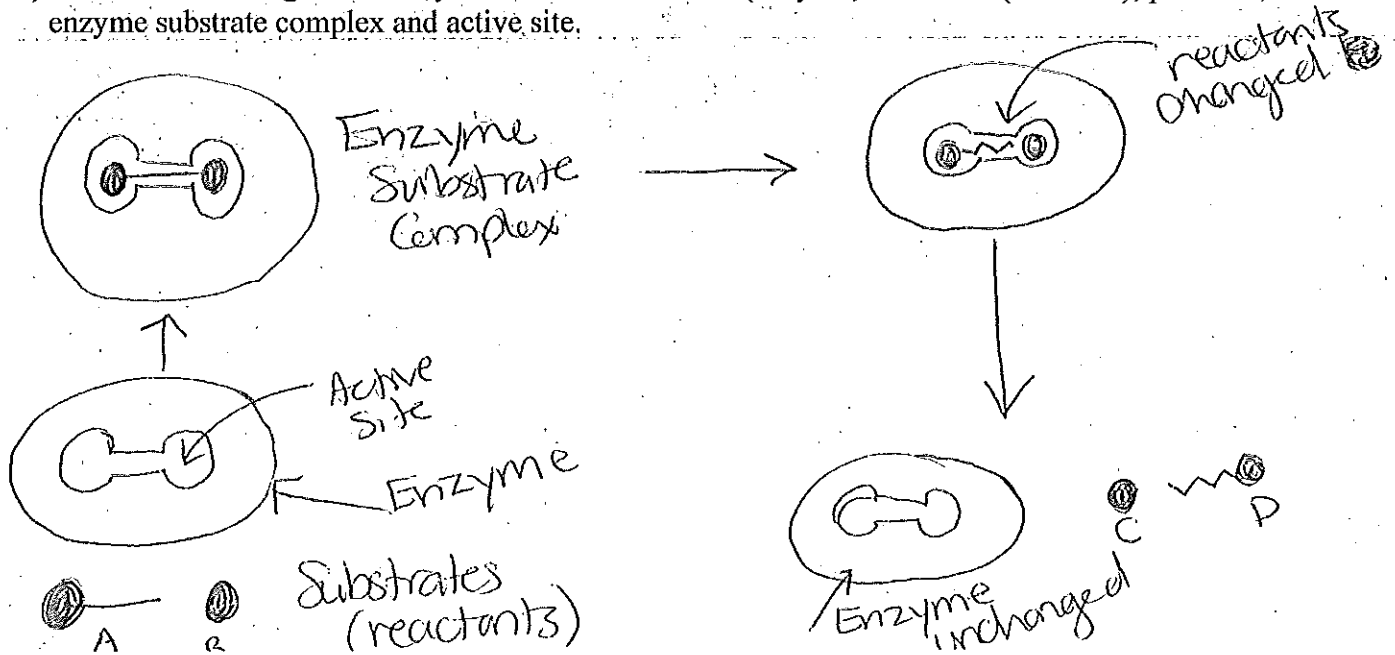 enzyme substrate complex and active site.
Enzyme
Substrate
Complex
reactants
changed
Active
Site
Enzyme
Substrates
(reactants)
A
B
Enzyme
unchanged
C
D